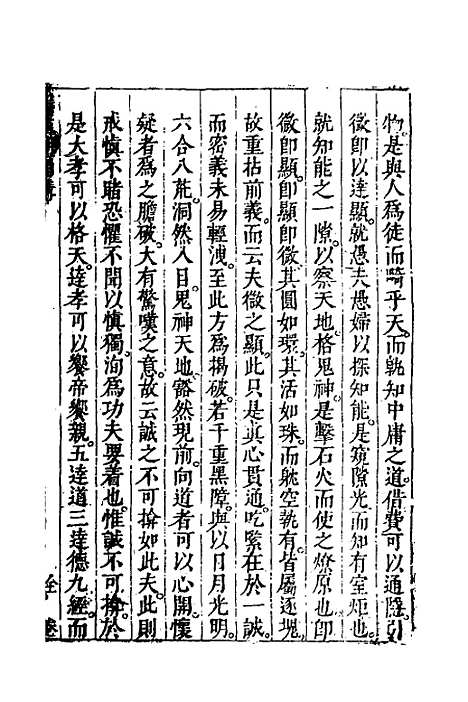 物是與人爲徒而畸乎天而孰知中庸之道借費可以通隱引
微即以達顯就愚夫愚婦以探知能是窺隙光而知有室炬也
就知能之一隙以察天地格鬼神是擊石火而使之燎原也即
微即顯即顯即微其圓如環其活如珠而躭空執有皆屬逐塊
故重拈前義而云夫微之顯此只是眞心貫通吃緊在於一誠
而密義未易輕洩至此方爲揭破若千重黑障與以日月光明
六合八荒洞然入目鬼神天地豁然現前向道者可以心開懷
疑者爲之膽破大有驚嘆之意故云誠之不可揜如此夫此則
戒慎不睹恐懼不聞以慎獨洵爲功夫要着也惟誠不可揜於
是大孝可以格天達孝可以饗帝饗親五達道三達德九經而